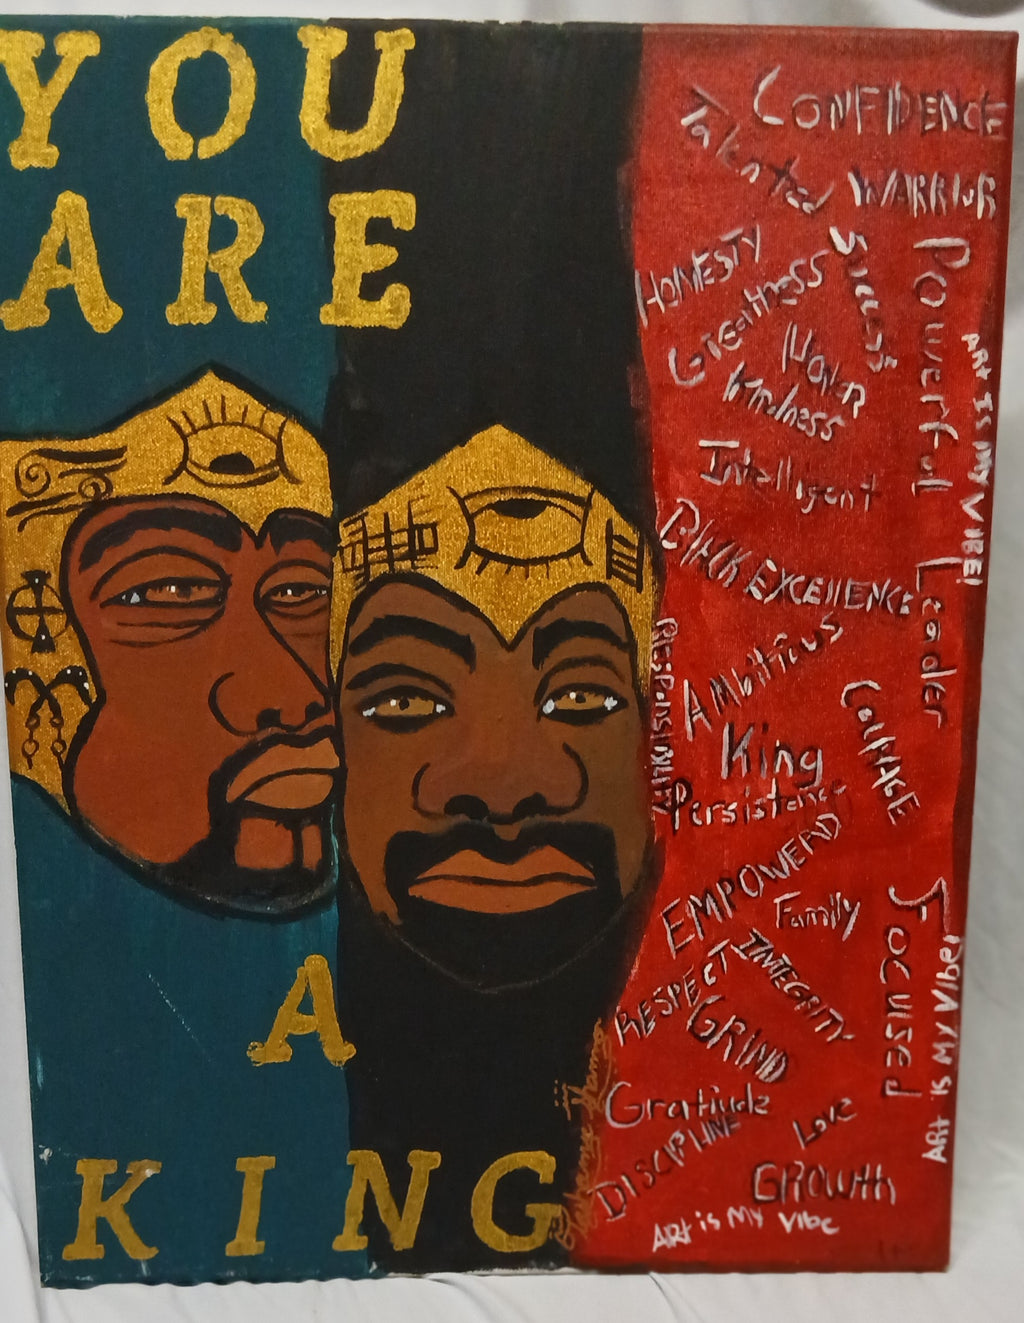 YOU
ARE
A
KING
CONFIDENCE
Talented
WARRIOR
HONESTY
SUCCESS
Powerful
Greatness
Honor
Kindness
ART IS MY VIBE!
Intelligent
BlACK EXCEllENCE
Leader
RESPONSIBILITY
Ambitious
King
COURAGE
Persistance
EMPOWERD
Family
FOCUSED
RESPECT
INTEGRITY
GRIND
ART is MY VIbe
Gratitude
DISCIPLINE
Love
GROWth
ARt is MY VIbe